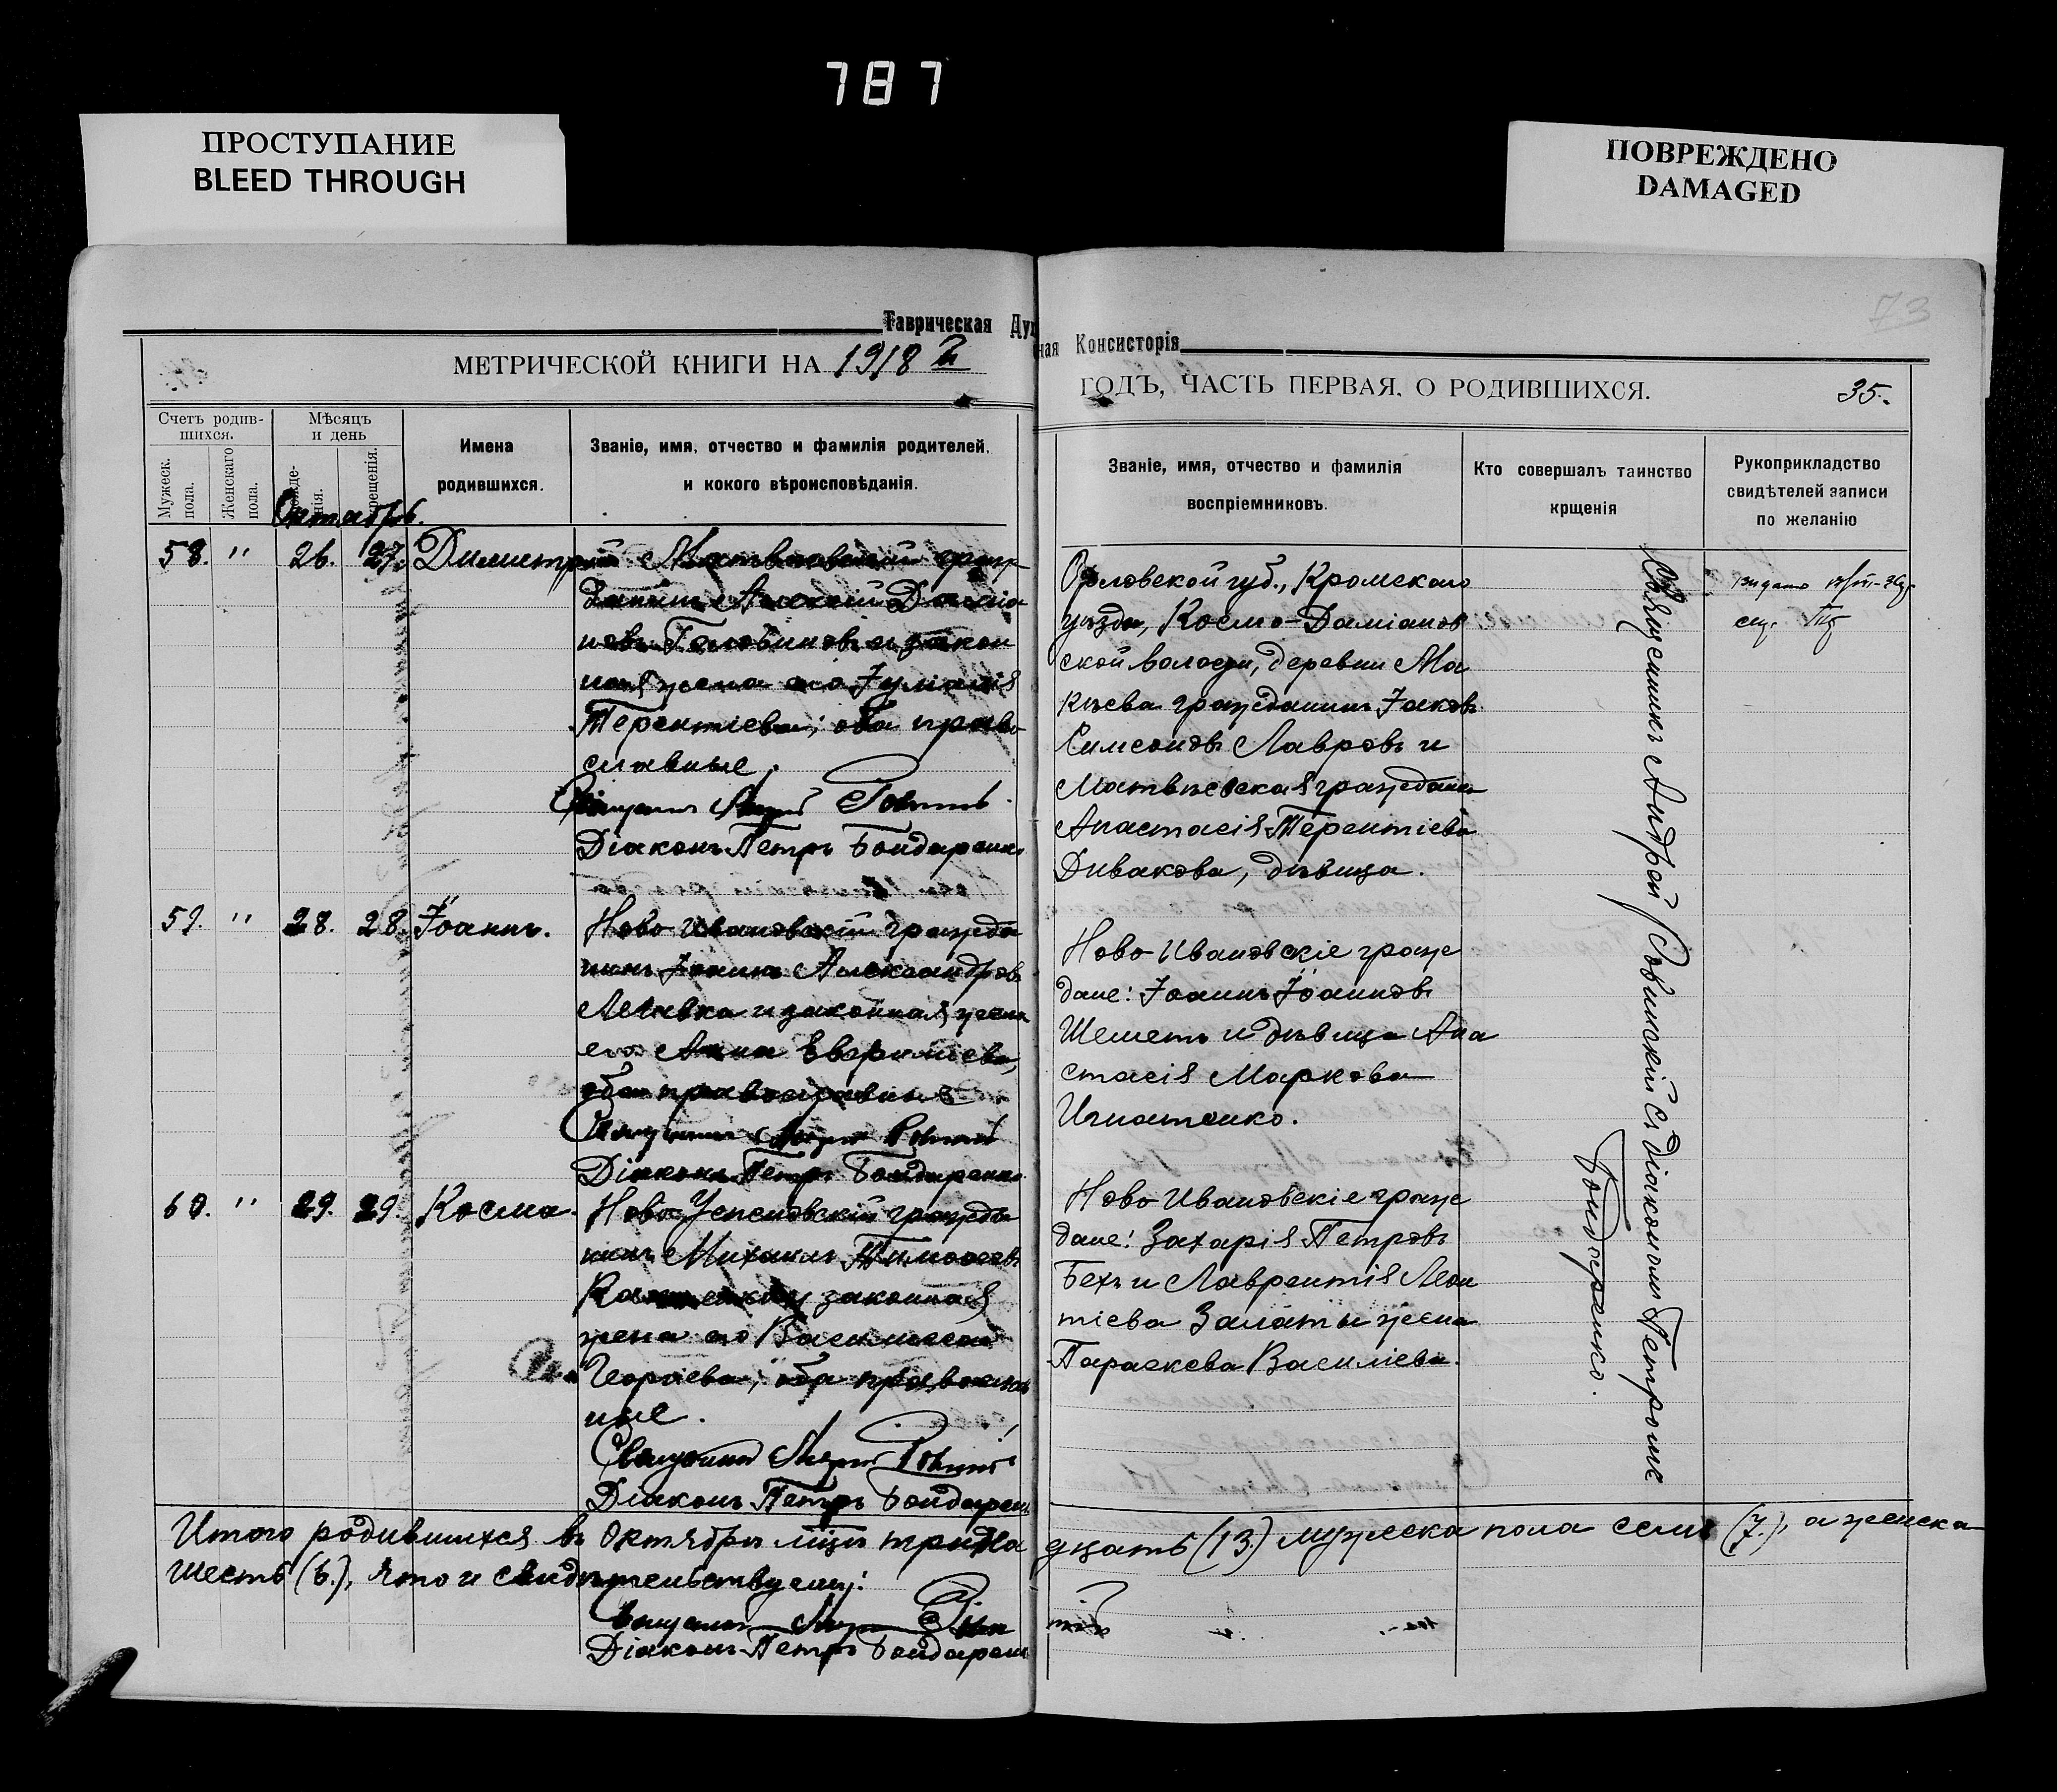 787
ПРОСТУПАНИЕ
BLEED THROUGH
ПОВРЕЖДЕНО
DAMAGED
73
Таврическая Дух
ная Консисторія
МЕТРИЧЕСКОЙ КНИГИ НА 1918 г.
ГОДЪ, ЧАСТЬ ПЕРВАЯ, О РОДИВШИХСЯ.
35.
Счетъ родив-
шихся.
Мужеск. пола.
Женскаго пола.
Мѣсяцъ
и день
рожде-
нія.
крещенія.
Имена
родившихся.
Званіе, имя, отчество и фамилія родителей,
и кокого вѣроисповѣданія.
Званіе, имя, отчество и фамилія
воспріемниковъ.
Кто совершалъ таинство
крщенія
Рукоприкладство
свидѣтелей записи
по желанію
Октябрь.
58. " 26. 27. Димитрій Матвѣевскій граж
данинъ Алексій Даміа
новъ Головиновъ и закон
ная жена его Іуліанія
Терентіева; оба право
славные.
Священникъ Андрей
Діаконъ Петръ Бондаренко
Орловской губ., Кромскаго
уѣзда, Космо-Даміанов
ской волости, деревни Ма
кѣева гражданинъ Іаковъ
Симеоновъ Лавровъ и
Матвѣевская гражданка
Анастасія Терентіева
Дивакова, дѣвица.
59. " 28. 28. Іоаннъ. Ново Ивановскій гражда
нинъ Іоаннъ Александровъ
Левка и законная жена
его Анна
оба православные
Священникъ Андрей
Діаконъ Петръ Бондаренко
Ново Ивановскіе граж
дане: Іоаннъ Іоанновъ
Шеметъ и дѣвица Ана
стасія Маркова
Игнатенко.
60. " 29. 29. Косма. Ново Успеновскій гражда
нинъ Михаилъ Тимоѳеевъ
законная
жена его
Георгіева; оба православ
ные.
Священникъ Андрей
Діаконъ Петръ Бондарен
Ново Ивановскіе граж
дане: Захарія Петровъ
Бехъ и Лаврентія Леон
тіева Залаты жена
Параскева Василіева.
Священникъ Андрей Совинскій съ діакономъ Петромъ
Бондаренко.
Итого родившихся въ Октябрѣ мцѣ трина
дцать (13.) мужеска пола семь (7.), а женска
шесть (6.), что и свидѣтельствуемъ:
Священникъ Андрей
Діаконъ Петръ Бондарен